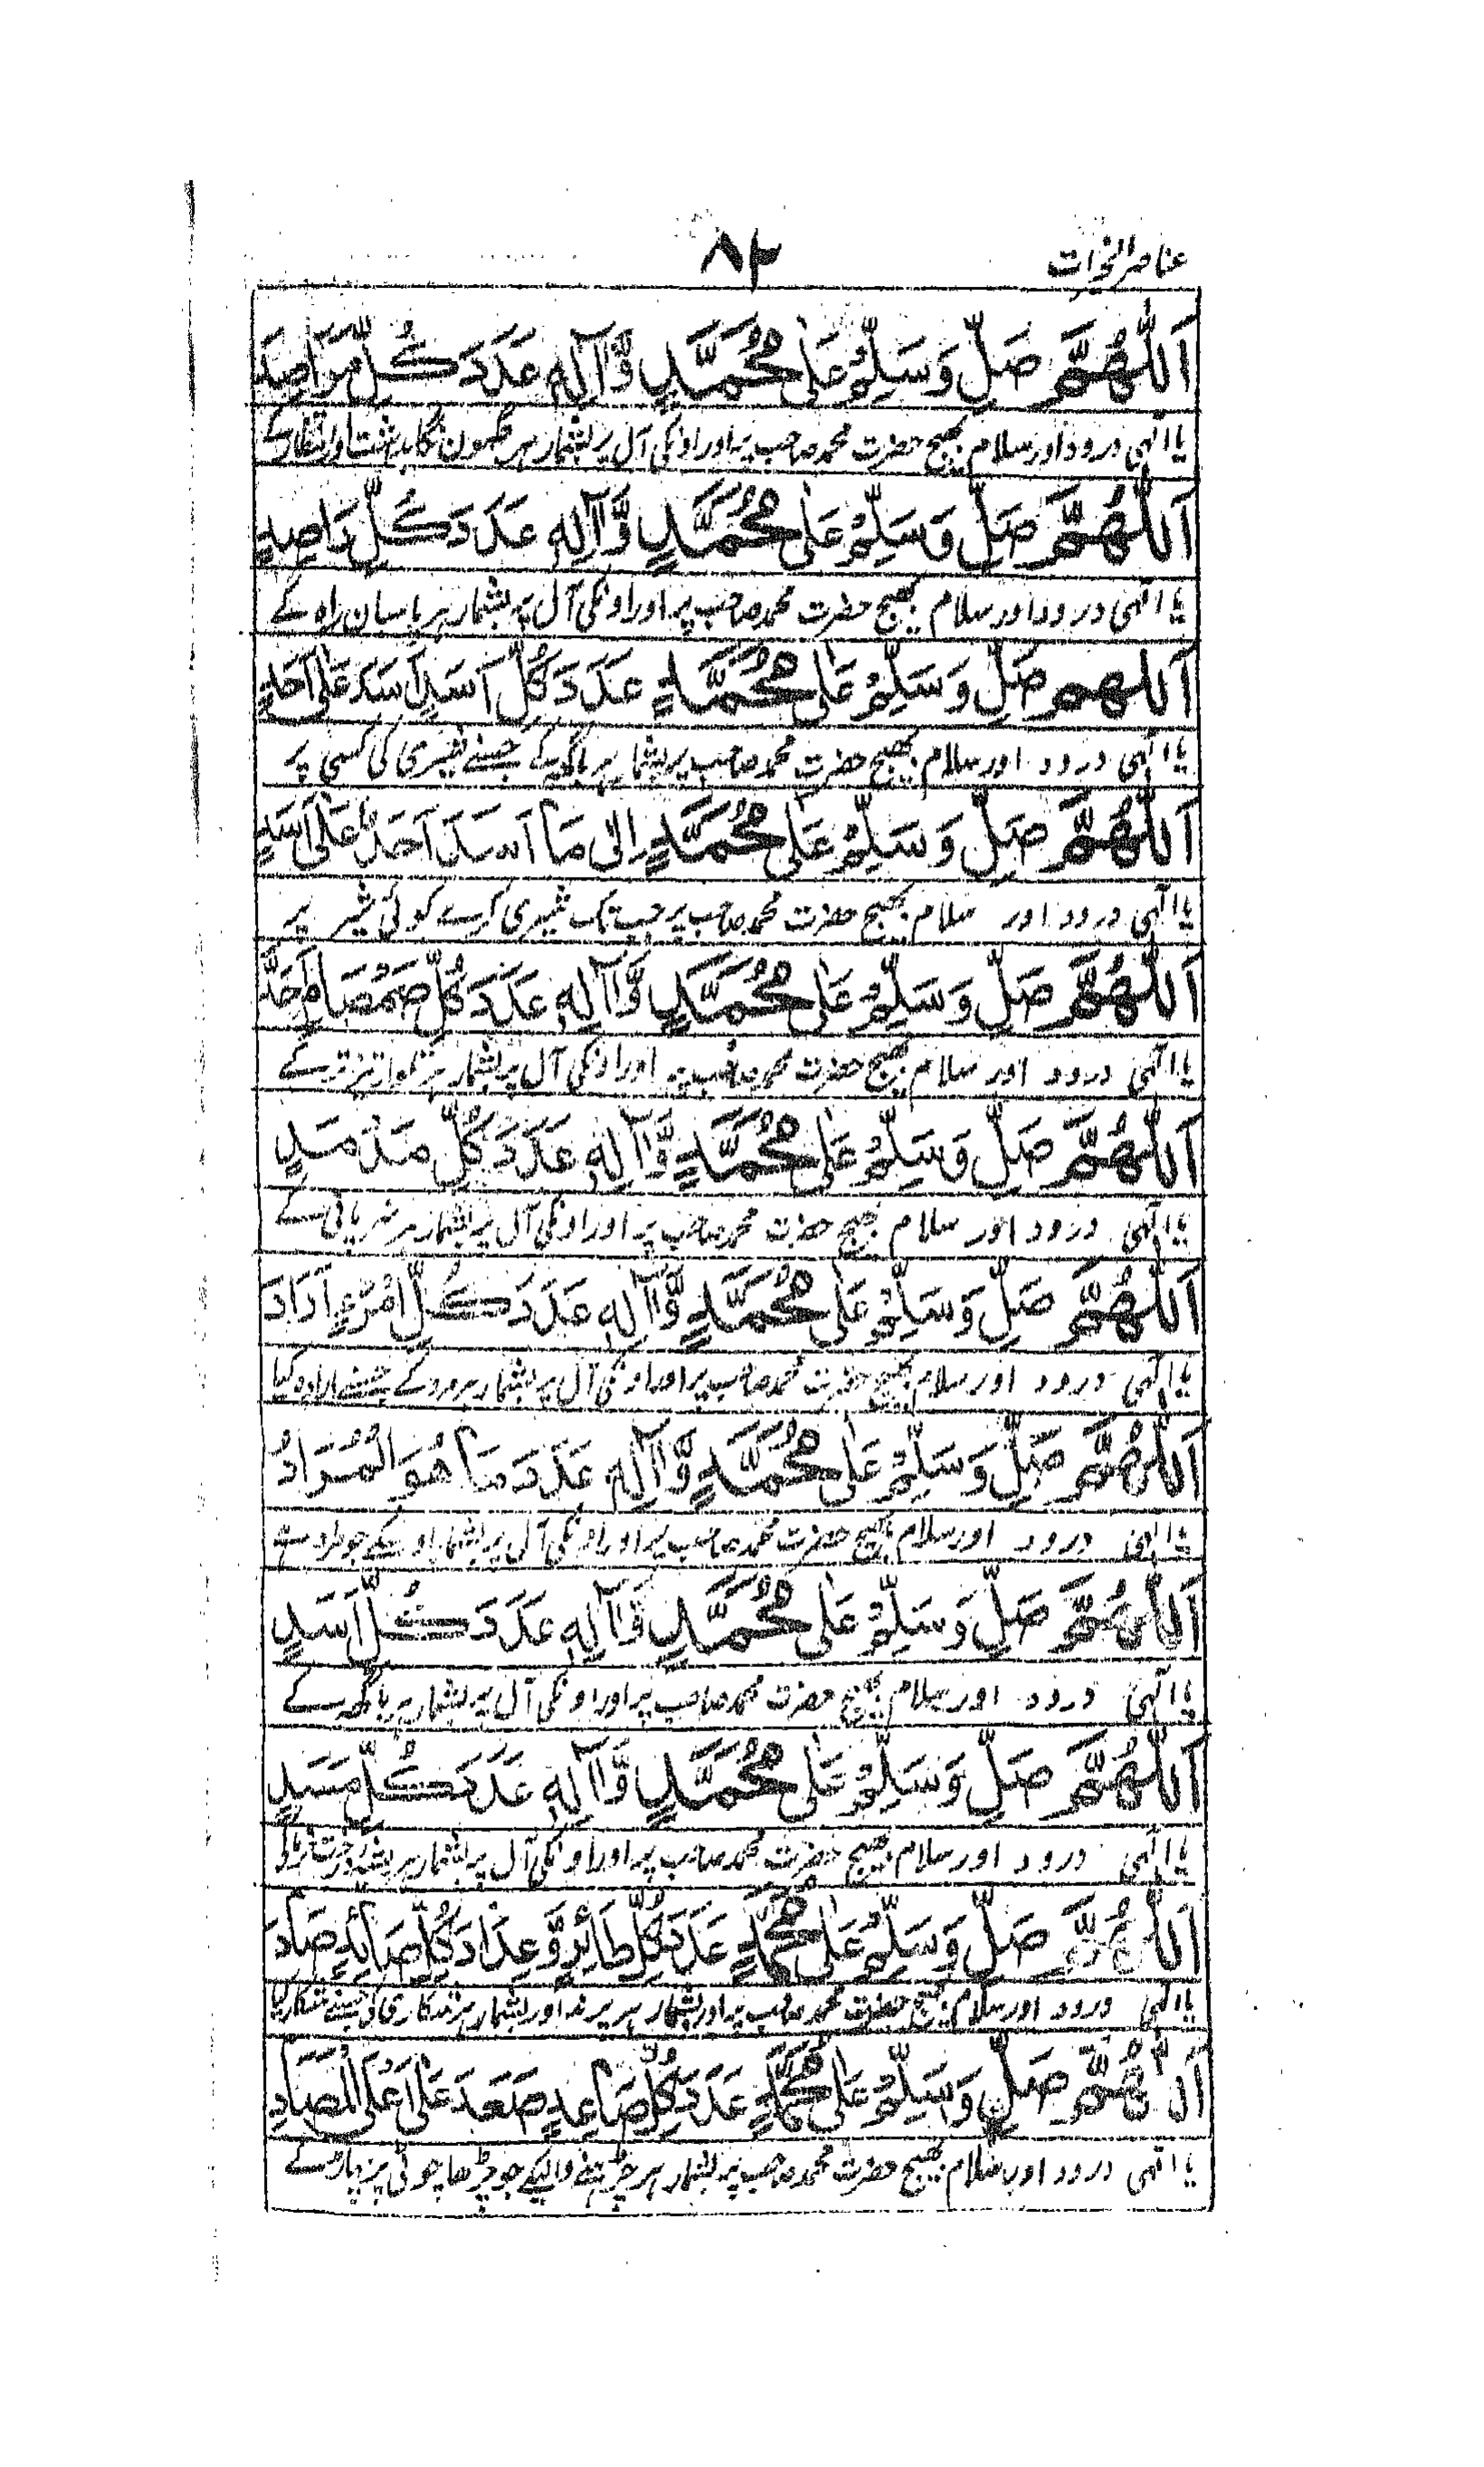 عناصر الخیرات
۸۲
اَللّٰهُمَّ صَلِّ وَسَلِّمْ عَلٰی مُحَمَّدٍ وَّاٰلِهٖ عَدَدَ كُلِّ مَرَاصِدَ
یا الٰہی درود اور سلام بھیج حضرت محمد صاحب پر اور اونکی آل پر بشمار ہر اور انتظار کے
اَللّٰهُمَّ صَلِّ وَسَلِّمْ عَلٰی مُحَمَّدٍ وَّاٰلِهٖ عَدَدَ كُلِّ رَاصِدٍ
یا الٰہی درود اور سلام بھیج حضرت محمد صاحب پر اور اونکی آل پر بشمار ہر پاسبان راہ کے
اَللّٰهم صَلِّ وَسَلِّمْ عَلٰی مُحَمَّدٍ عَدَدَ كُلِّ اَسَدٍ اَسَدَ عَلٰی اَحَدٍ
یا الٰہی درود اور سلام بھیج حضرت محمد صاحب پر بشمار ہر باگھ کے جسنے شیری کی کسی پر
اَللّٰهُمَّ صَلِّ وَسَلِّمْ عَلٰی مُحَمَّدٍ اِلٰی مَا اَسَدَ اَحَدٌ عَلٰی اَسَدٍ
یا الٰہی درود اور سلام بھیج حضرت محمد صاحب پر جب تک شیری کرے کوئی شیر پر
اَللّٰهُمَّ صَلِّ وَسَلِّمْ عَلٰی مُحَمَّدٍ وَّاٰلِهٖ عَدَدَ كُلِّ صَمْصَامٍ حَدٍّ
یا الٰہی درود اور سلام بھیج حضرت محمد صاحب پر اور اونکی آل پر بشمار ہر تلوار تیز کے
اَللّٰهُمَّ صَلِّ وَسَلِّمْ عَلٰی مُحَمَّدٍ وَّاٰلِهٖ عَدَدَ كُلِّ
یا الٰہی درود اور سلام بھیج حضرت محمد صاحب پر اور اونکی آل پر بشمار ہر کے
اَللّٰهُمَّ صَلِّ وَسَلِّمْ عَلٰی مُحَمَّدٍ وَّاٰلِهٖ عَدَدَ كُلِّ امْرَءٍ اَرَادَ
یا الٰہی درود اور سلام بھیج حضرت محمد صاحب پر اور اونکی آل پر بشمار ہر مرد کے جسنے ارادہ کیا
اَللّٰهُمَّ صَلِّ وَسَلِّمْ عَلٰی مُحَمَّدٍ وَّاٰلِهٖ عَدَدَ مَا هُوَ الْمُرَادُ
یا الٰہی درود اور سلام بھیج حضرت محمد صاحب پر اور اونکی آل پر بشمار اوسکے جو مراد ہے
اَللّٰهُمَّ صَلِّ وَسَلِّمْ عَلٰی مُحَمَّدٍ وَّاٰلِهٖ عَدَدَ كُلِّ اَسَدٍ
یا الٰہی درود اور سلام بھیج حضرت محمد صاحب پر اور اونکی آل پر بشمار ہر باگھ کے
اَللّٰهُمَّ صَلِّ وَسَلِّمْ عَلٰی مُحَمَّدٍ وَّاٰلِهٖ عَدَدَ كُلِّ مَسَدٍ
یا الٰہی درود اور سلام بھیج حضرت محمد صاحب پر اور اونکی آل پر بشمار ہر
اَللّٰهُمَّ صَلِّ وَسَلِّمْ عَلٰی مُحَمَّدٍ عَدَدَ كُلِّ طَائِرٍ وَّعِدَادَ كُلِّ صَائِدٍ صَادَ
یا الٰہی درود اور سلام بھیج حضرت محمد صاحب پر اور بشمار ہر پرند اور بشمار ہر شکاری کے جسنے شکار کیا
اَللّٰهُمَّ صَلِّ وَسَلِّمْ عَلٰی مُحَمَّدٍ عَدَدَ كُلِّ صَاعِدٍ صَعَدَ عَلٰی اَعْلَی الْمَصَادِ
یا الٰہی درود اور سلام بھیج حضرت محمد صاحب پر بشمار ہر چڑہنے والیکے جو چڑھا چوٹی پر پہاڑ کے